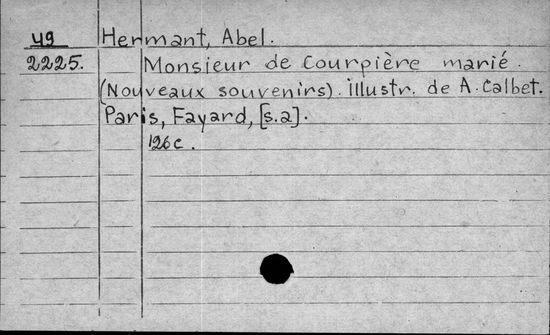 49 Hermant, Abel.
2225. Monsieur de Courpière marié.
(Nouveaux souvenirs). illustr. de A. Calbet.
Paris, Fayard, [s.a].
126 c.